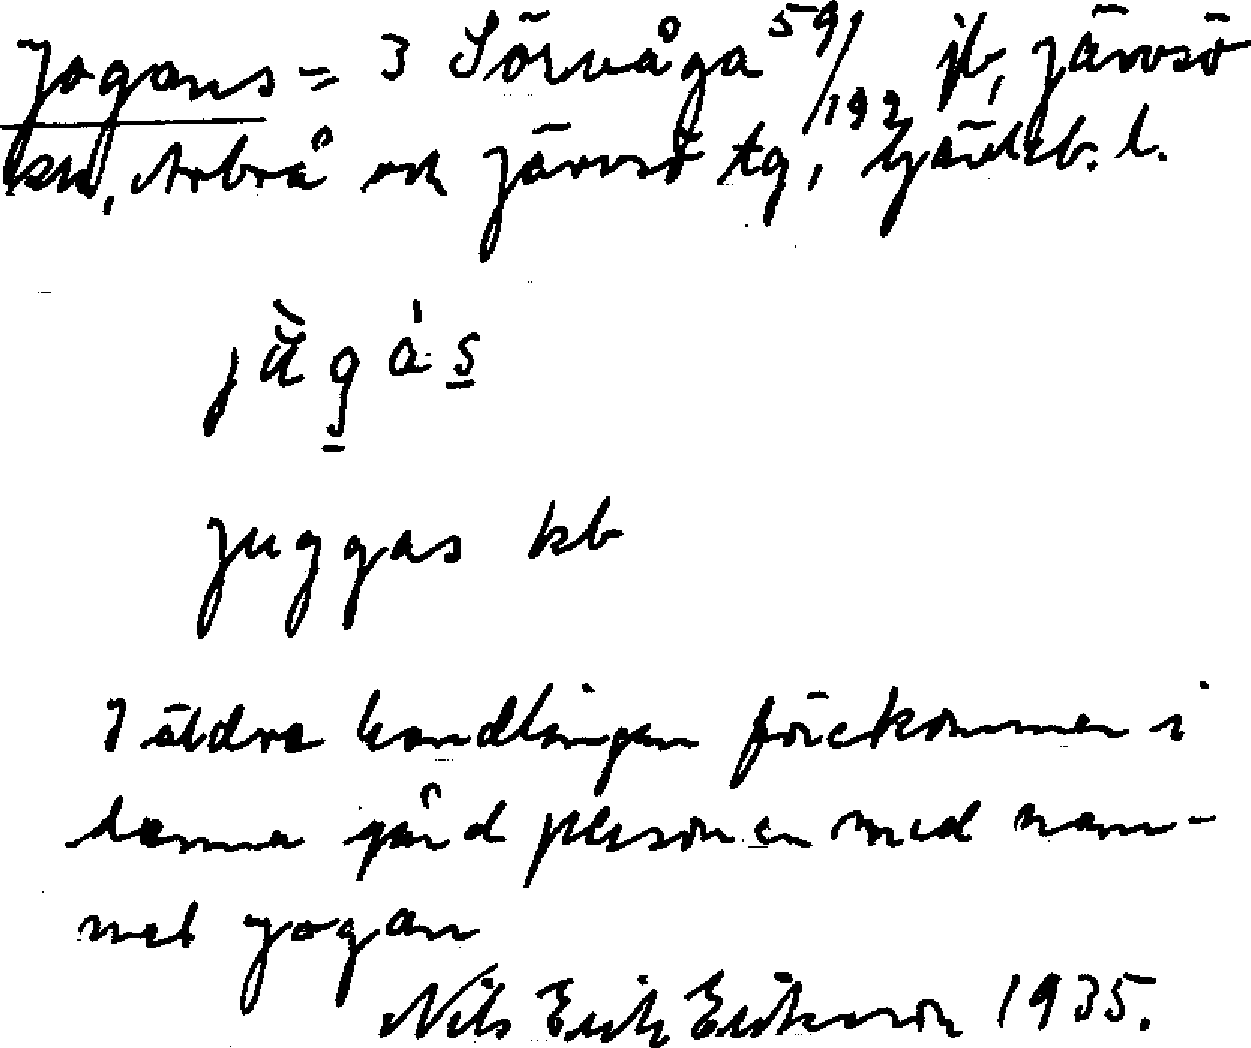 Jogans = 3 Sörvåga 59/192 jb, Järvsö
sn, Arbrå och Järvsö tg, Gävleb. l.
Juggas kb
I äldre handlingar förekommer i
denna gård personer med nam-
net Jogan
Nils Erik Eriksson 1935.